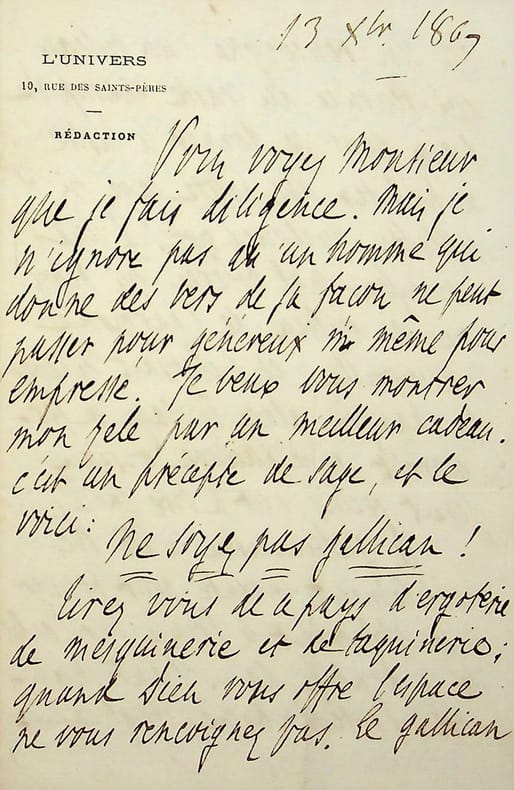 13 Xbr. 1869
L'UNIVERS
10, RUE DES SAINTS-PÈRES
RÉDACTION
Vous voyez Monsieur
que je fais diligence. Mais je
n'ignore pas qu'un homme qui
donne des vers de sa façon ne peut
passer pour généreux ni même pour
empressé. Je veux vous montrer
mon zele par un meilleur cadeau.
c'est un précepte de sage, et le
voici:
Ne soyez pas gallican !
Tirez vous de ce pays d'ergoterie
de mesquinerie et de taquinerie;
quand Dieu vous offre l'espace
ne vous rencoignez pas. Le gallican